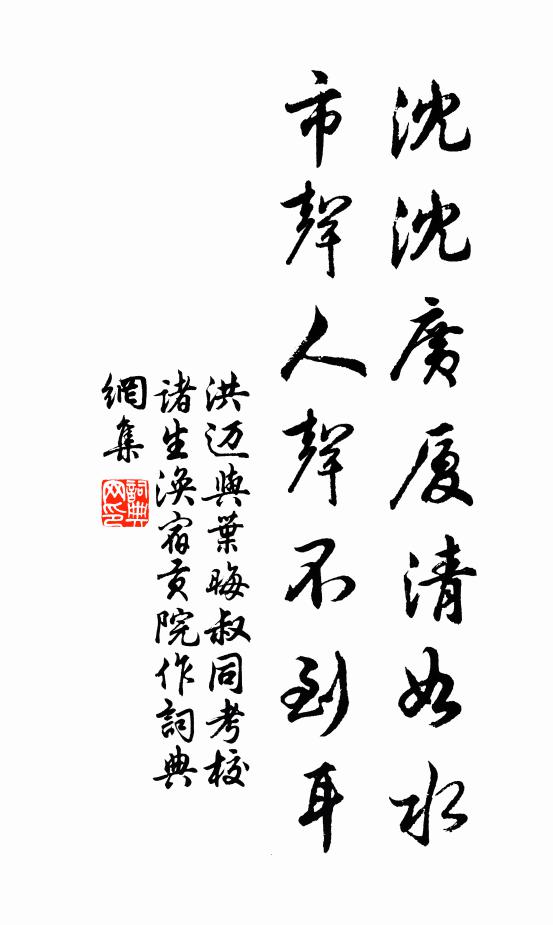 沈沈廣厦清如水
市聲人聲不到耳
洪迈與葉晦叔同考校
諸生渙宿貢院作詞典
網集
詞典網印